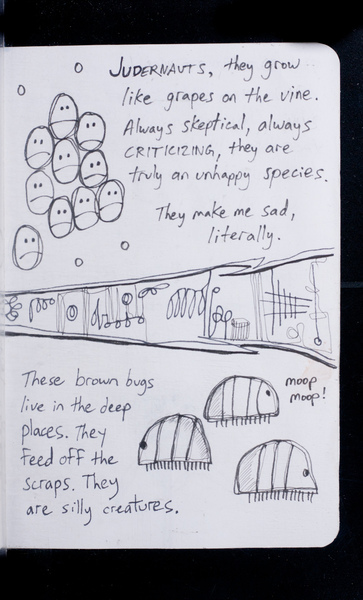 JUDERNAUTS, they grow
like grapes on the vine.
Always skeptical, always
CRITICIZING, they are
truly an unhappy species.
They make me sad,
literally.
These brown bugs
live in the deep
places. They
feed off the
scraps. They
are silly creatures.
moop
moop!